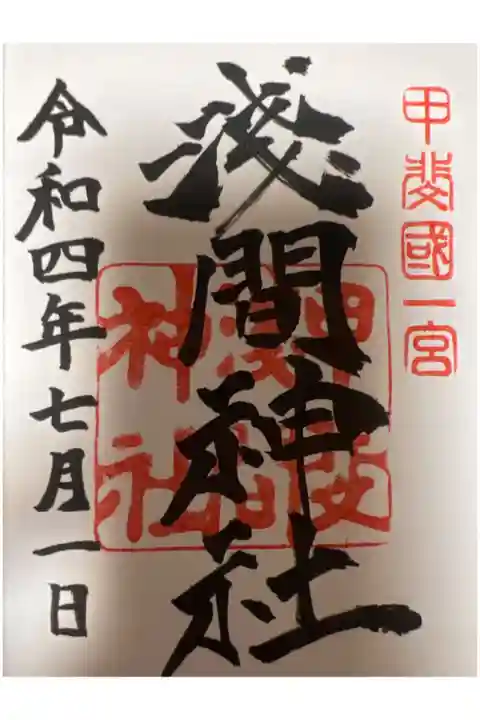 甲斐國一宮
浅間神社
令和四年七月一日